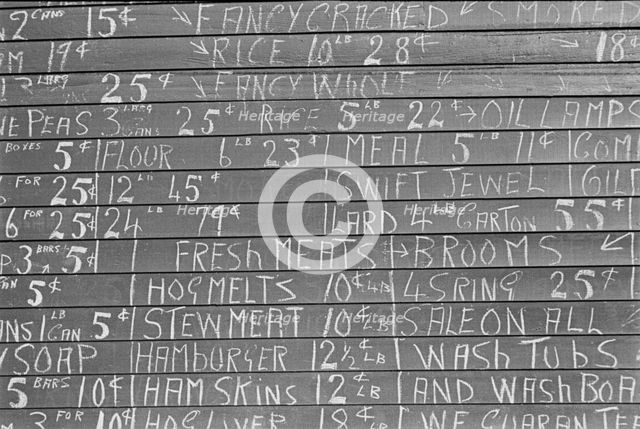 2 CANS 15¢ → FANCY CRACKED ↙ SMOKED
M 19¢ → RICE 10 LB 28¢ → 18
25¢ → FANCY WHOLE
E PEAS 3 LARG CANS 25¢ RICE 5 LB 22¢ → OIL LAMPS
BOXES 5¢ FLOUR 6 LB 23¢ MEAL 5 LB 11¢ COM
FOR 25¢ 12 LB 45¢ SWIFT JEWEL
6 FOR 25¢ 24 LB LARD 4 LB CARTON 55¢
3 BARS 5¢ FRESH MEATS → BROOMS ↙
5¢ HOG MELTS 10¢ LB 4 SRING 25¢
ANS 1 LB CAN 5¢ STEW MEAT 10¢ LB SALE ON ALL
Y SOAP HAMBURGER 12½¢ LB WASH TUBS
5 BARS 10¢ HAM SKINS 12¢ LB AND WASH BOA
3 FOR 10¢ HOG LIVER 18¢ LB WE GUARANTEE
Heritage
Heritage
Heritage
Heritage
Heritage
Heritage
Heritage
Heritage
©